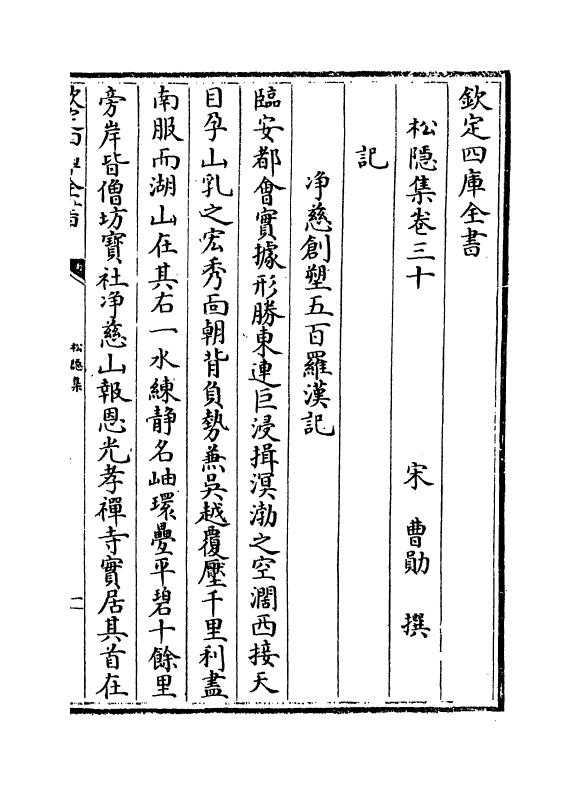 欽定四庫全書
松隠集卷三十
宋 曹勛 撰
記
净慈創塑五百羅漢記
臨安都會實據形勝東連巨浸揖溟渤之空濶西接天
目孕山乳之宏秀面朝背負勢兼吳越覆壓千里利盡
南服而湖山在其右一水練静名岫環疊平碧十餘里
旁岸皆僧坊寶社净慈山報恩光孝禪寺實居其首在
松隠集